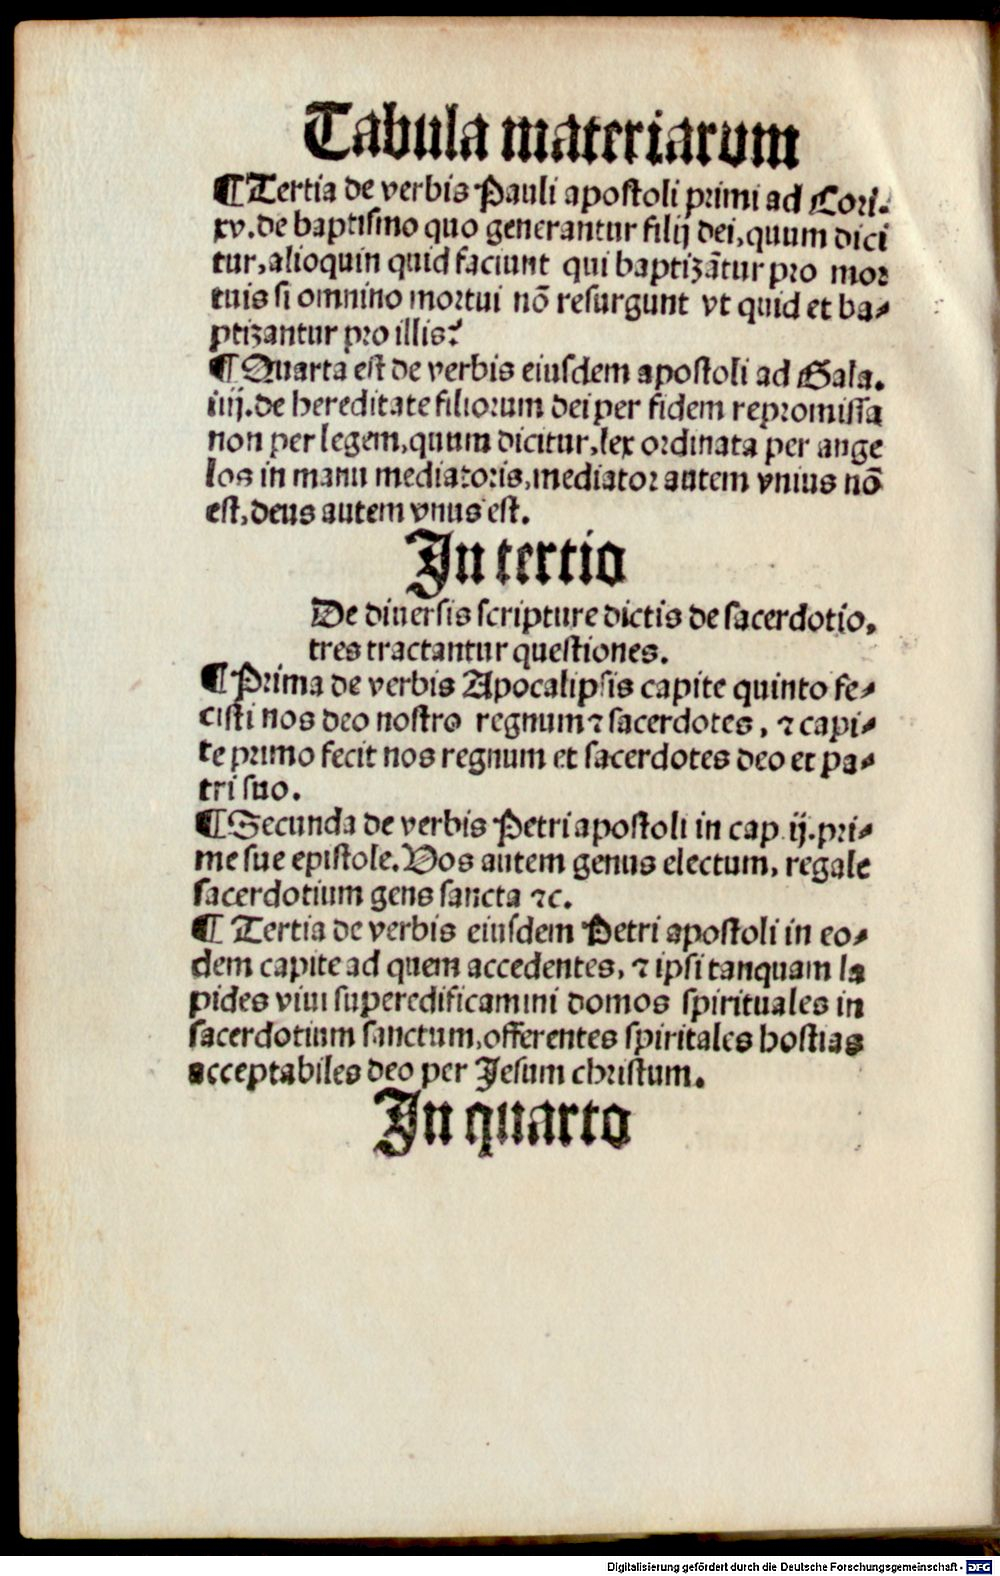 Tabula materiarum
¶Tertia de verbis Pauli apostoli primi ad Cori.
xv. de baptismo quo generantur filij dei, quum dici
tur, alioquin quid faciunt qui baptizãtur pro mor
tuis si omnino mortui nõ resurgunt vt quid et ba⸗
ptizantur pro illis?
¶Quarta est de verbis eiusdem apostoli ad Gala.
iiij. de hereditate filiorum dei per fidem repromissa
non per legem, quum dicitur, lex ordinata per ange
los in manu mediatoris, mediator autem vnius nõ
est, deus autem vnus est.
In tertio
De diuersis scripture dictis de sacerdotio,
tres tractantur questiones.
¶Prima de verbis Apocalipsis capite quinto fe⸗
cisti nos deo nostro regnum ⁊ sacerdotes, ⁊ capi⸗
te primo fecit nos regnum et sacerdotes deo et pa⸗
tri suo.
¶Secunda de verbis Petri apostoli in cap. ij. pri⸗
me sue epistole. Vos autem genus electum, regale
sacerdotium gens sancta ⁊c.
¶ Tertia de verbis eiusdem Petri apostoli in eo⸗
dem capite ad quem accedentes, ⁊ ipsi tanquam la
pides viui superedificamini domos spirituales in
sacerdotium sanctum, offerentes spiritales hostias
acceptabiles deo per Jesum christum.
In quarto
Digitalisierung gefördert durch die Deutsche Forschungsgemeinschaft - DFG